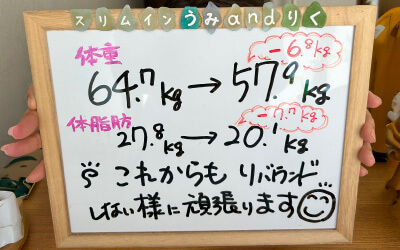 スリムインうみandりく
体重
-6.8kg
64.7kg→57.9kg
体脂肪
-7.7kg
27.8kg→20.1kg
これからも リバウンド
しない様に頑張ります